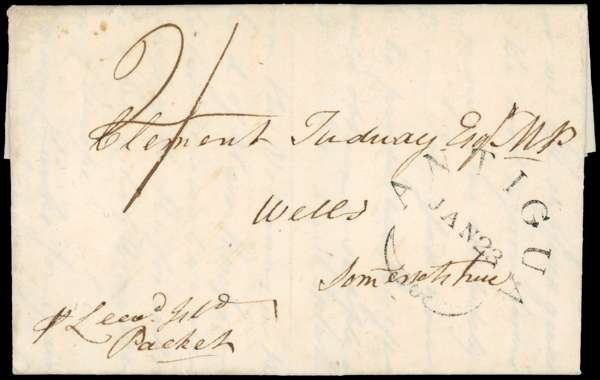 2/
Clement Tudway Esqr. MP
Wells
Somersetshire
ANTIGUA
JAN 23
Leewd Isld
Packet